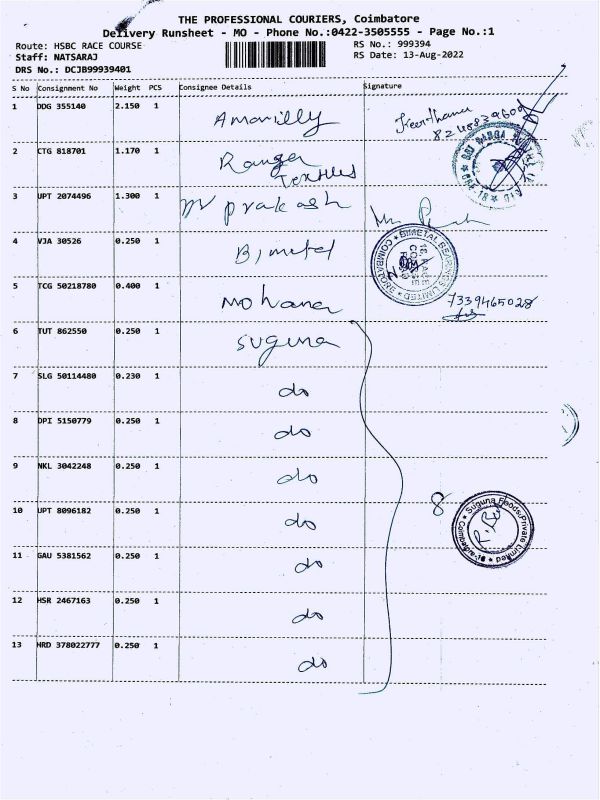 THE PROFESSIONAL COURIERS, Coimbatore
Delivery Runsheet - MO - Phone No.:0422-3505555 - Page No.:1
Route: HSBC RACE COURSE
RS No.: 999394
Staff: NATSARAJ
RS Date: 13-Aug-2022
DRS No.: DCJB99939401
S No Consignment No Weight PCS Consignee Details Signature
1 DDG 355140 2.150 1 Amarilly Keerthana
8248839600
2 CTG 818701 1.170 1 Ranger
Textiles
3 UPT 2074496 1.300 1 prakash
4 VJA 30526 0.250 1 Bimetal
BIMETAL BEARINGS LIMITED
COIMBATORE
5 TCG 50218780 0.400 1 Mohana 7339465028
6 TUT 862550 0.250 1 Suguna
7 SLG 50114480 0.230 1 do
8 DPI 5150779 0.250 1 do
9 NKL 3042248 0.250 1 do
10 UPT 8096182 0.250 1 do
8
Suguna Foods Private Limited
Coimbatore-18
11 GAU 5381562 0.250 1 do
12 HSR 2467163 0.250 1 do
13 HRD 378022777 0.250 1 do